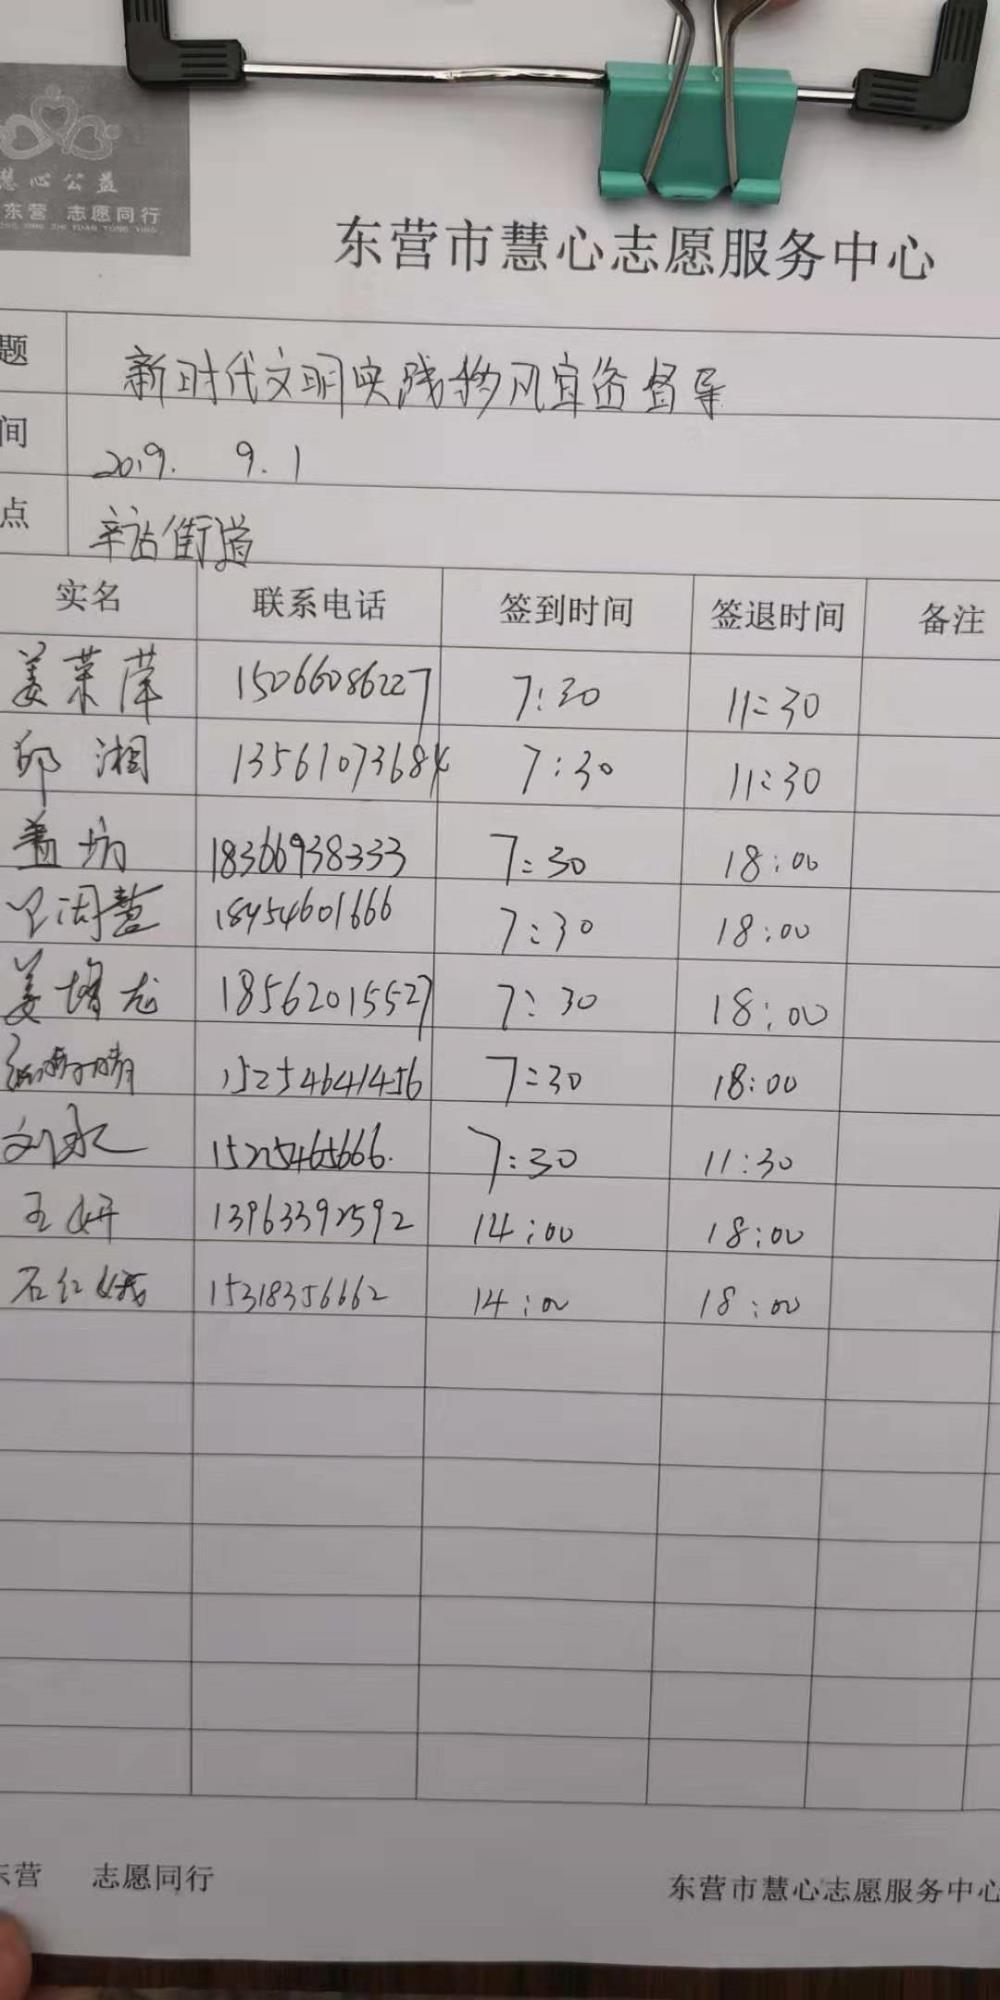 慧心公益
东营 志愿同行
东营市慧心志愿服务中心
题 新时代文明实践移风宣资督导
间 2019. 9.1
点 辛店街道
实名 联系电话 签到时间 签退时间 备注
姜荣萍 15066086227 7:30 11:30
邱湘 13561073684 7:30 11:30
盖娟 18366938333 7:30 18:00
18454601666 7:30 18:00
姜增龙 18562015527 7:30 18:00
15254641456 7:30 18:00
刘永 15225465666. 7:30 11:30
王妍 13963392592 14:00 18:00
石红娥 15318356662 14:00 18:00
东营 志愿同行
东营市慧心志愿服务中心